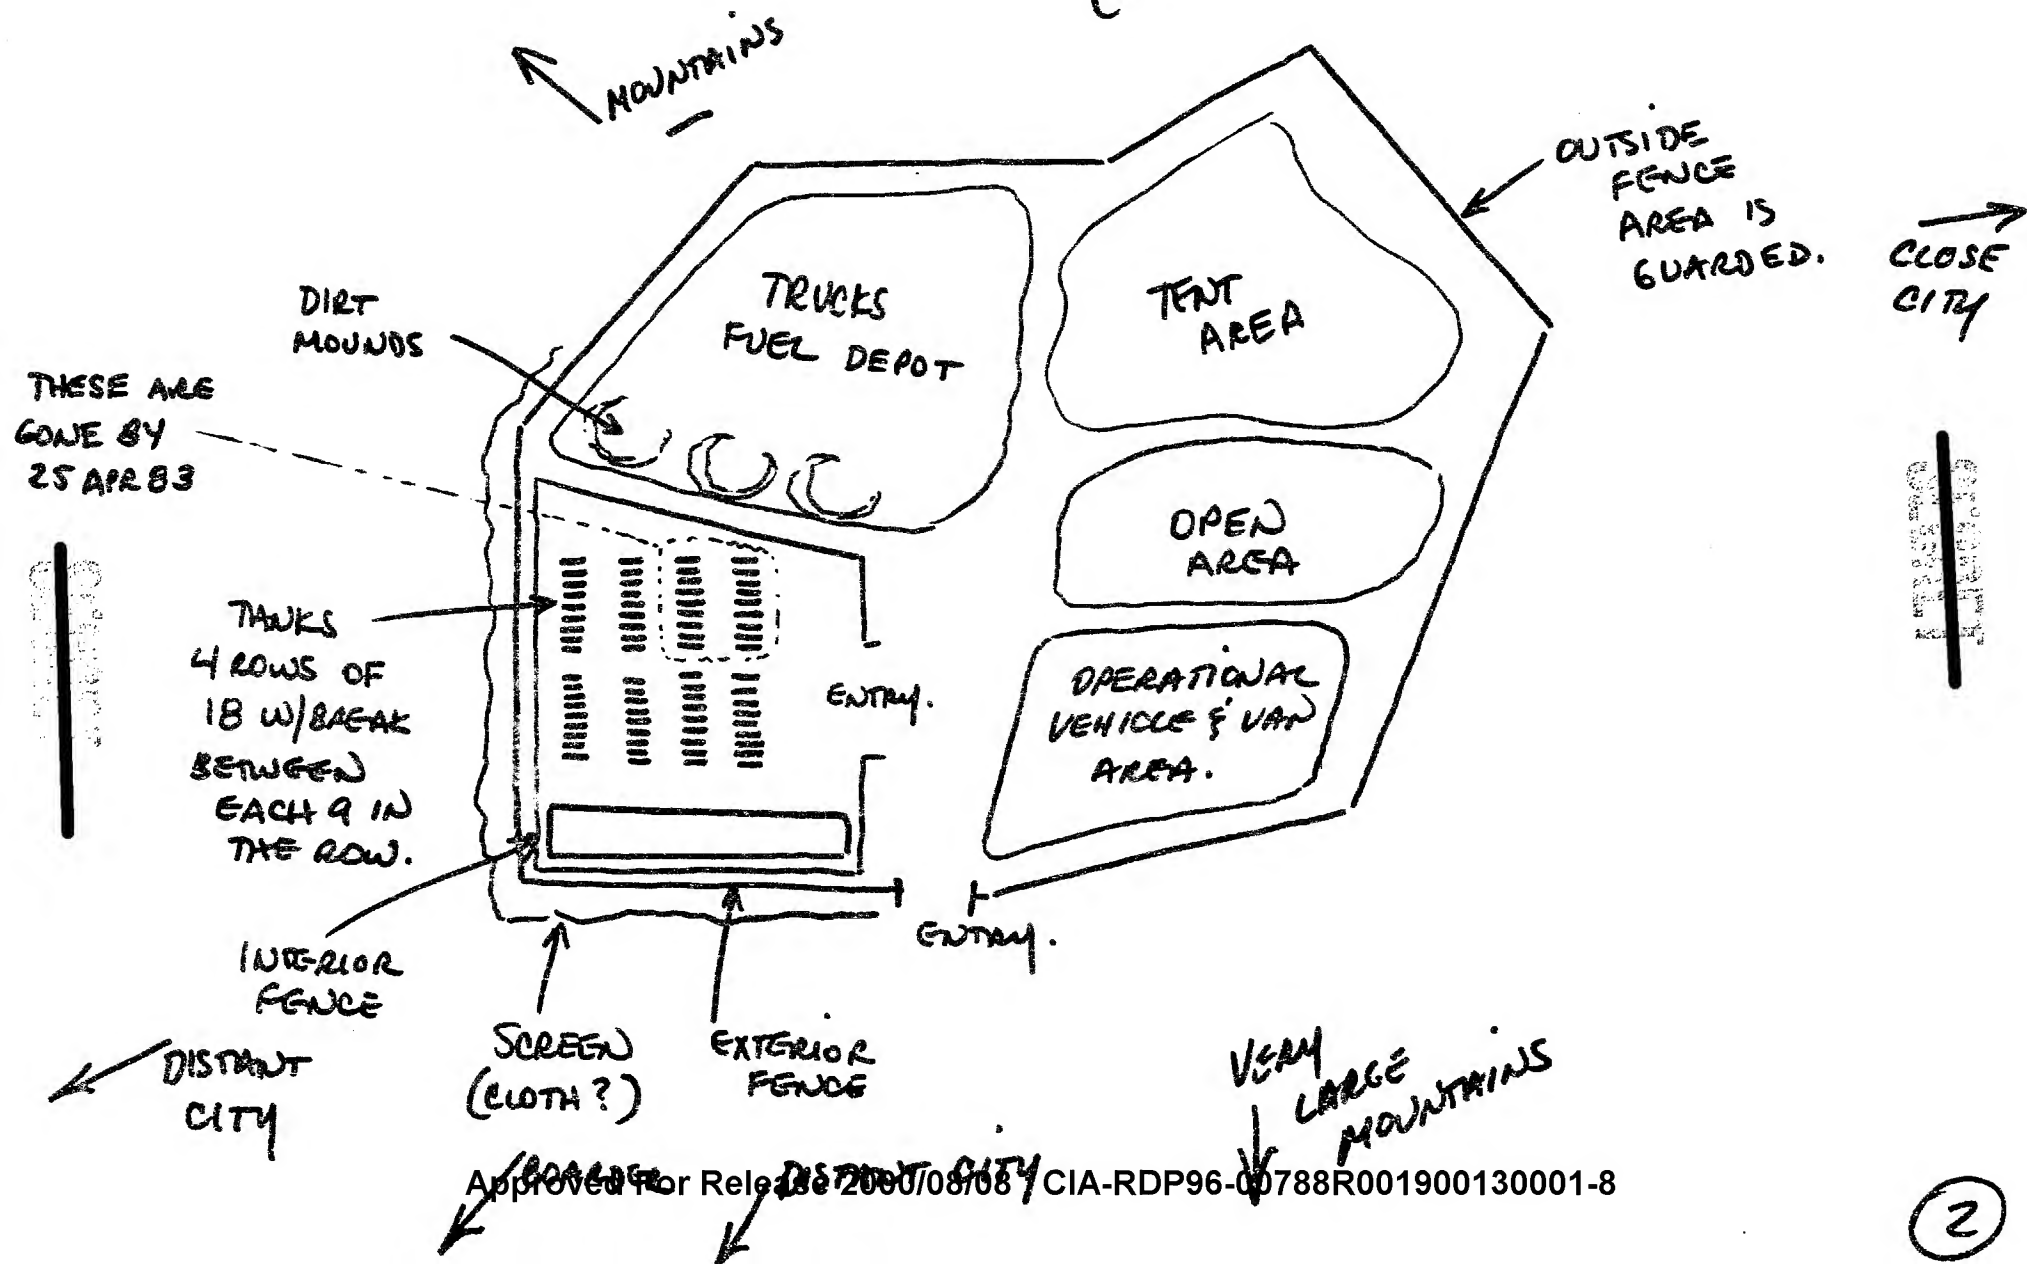 MOUNTAINS
OUTSIDE
FENCE
AREA IS
GUARDED.
CLOSE
CITY
DIRT
MOUNDS
TRUCKS
FUEL DEPOT
TENT
AREA
THESE ARE
GONE BY
25 APR 83
OPEN
AREA
TANKS
4 ROWS OF
18 W/BREAK
BETWEEN
EACH 9 IN
THE ROW.
ENTRY.
OPERATIONAL
VEHICLE & VAN
AREA.
INTERIOR
FENCE
ENTRY.
DISTANT
CITY
SCREEN
(CLOTH?)
EXTERIOR
FENCE
VERY
LARGE
MOUNTAINS
BOARDER
DISTANT CITY
Approved For Release 2000/08/08 : CIA-RDP96-00788R001900130001-8
2